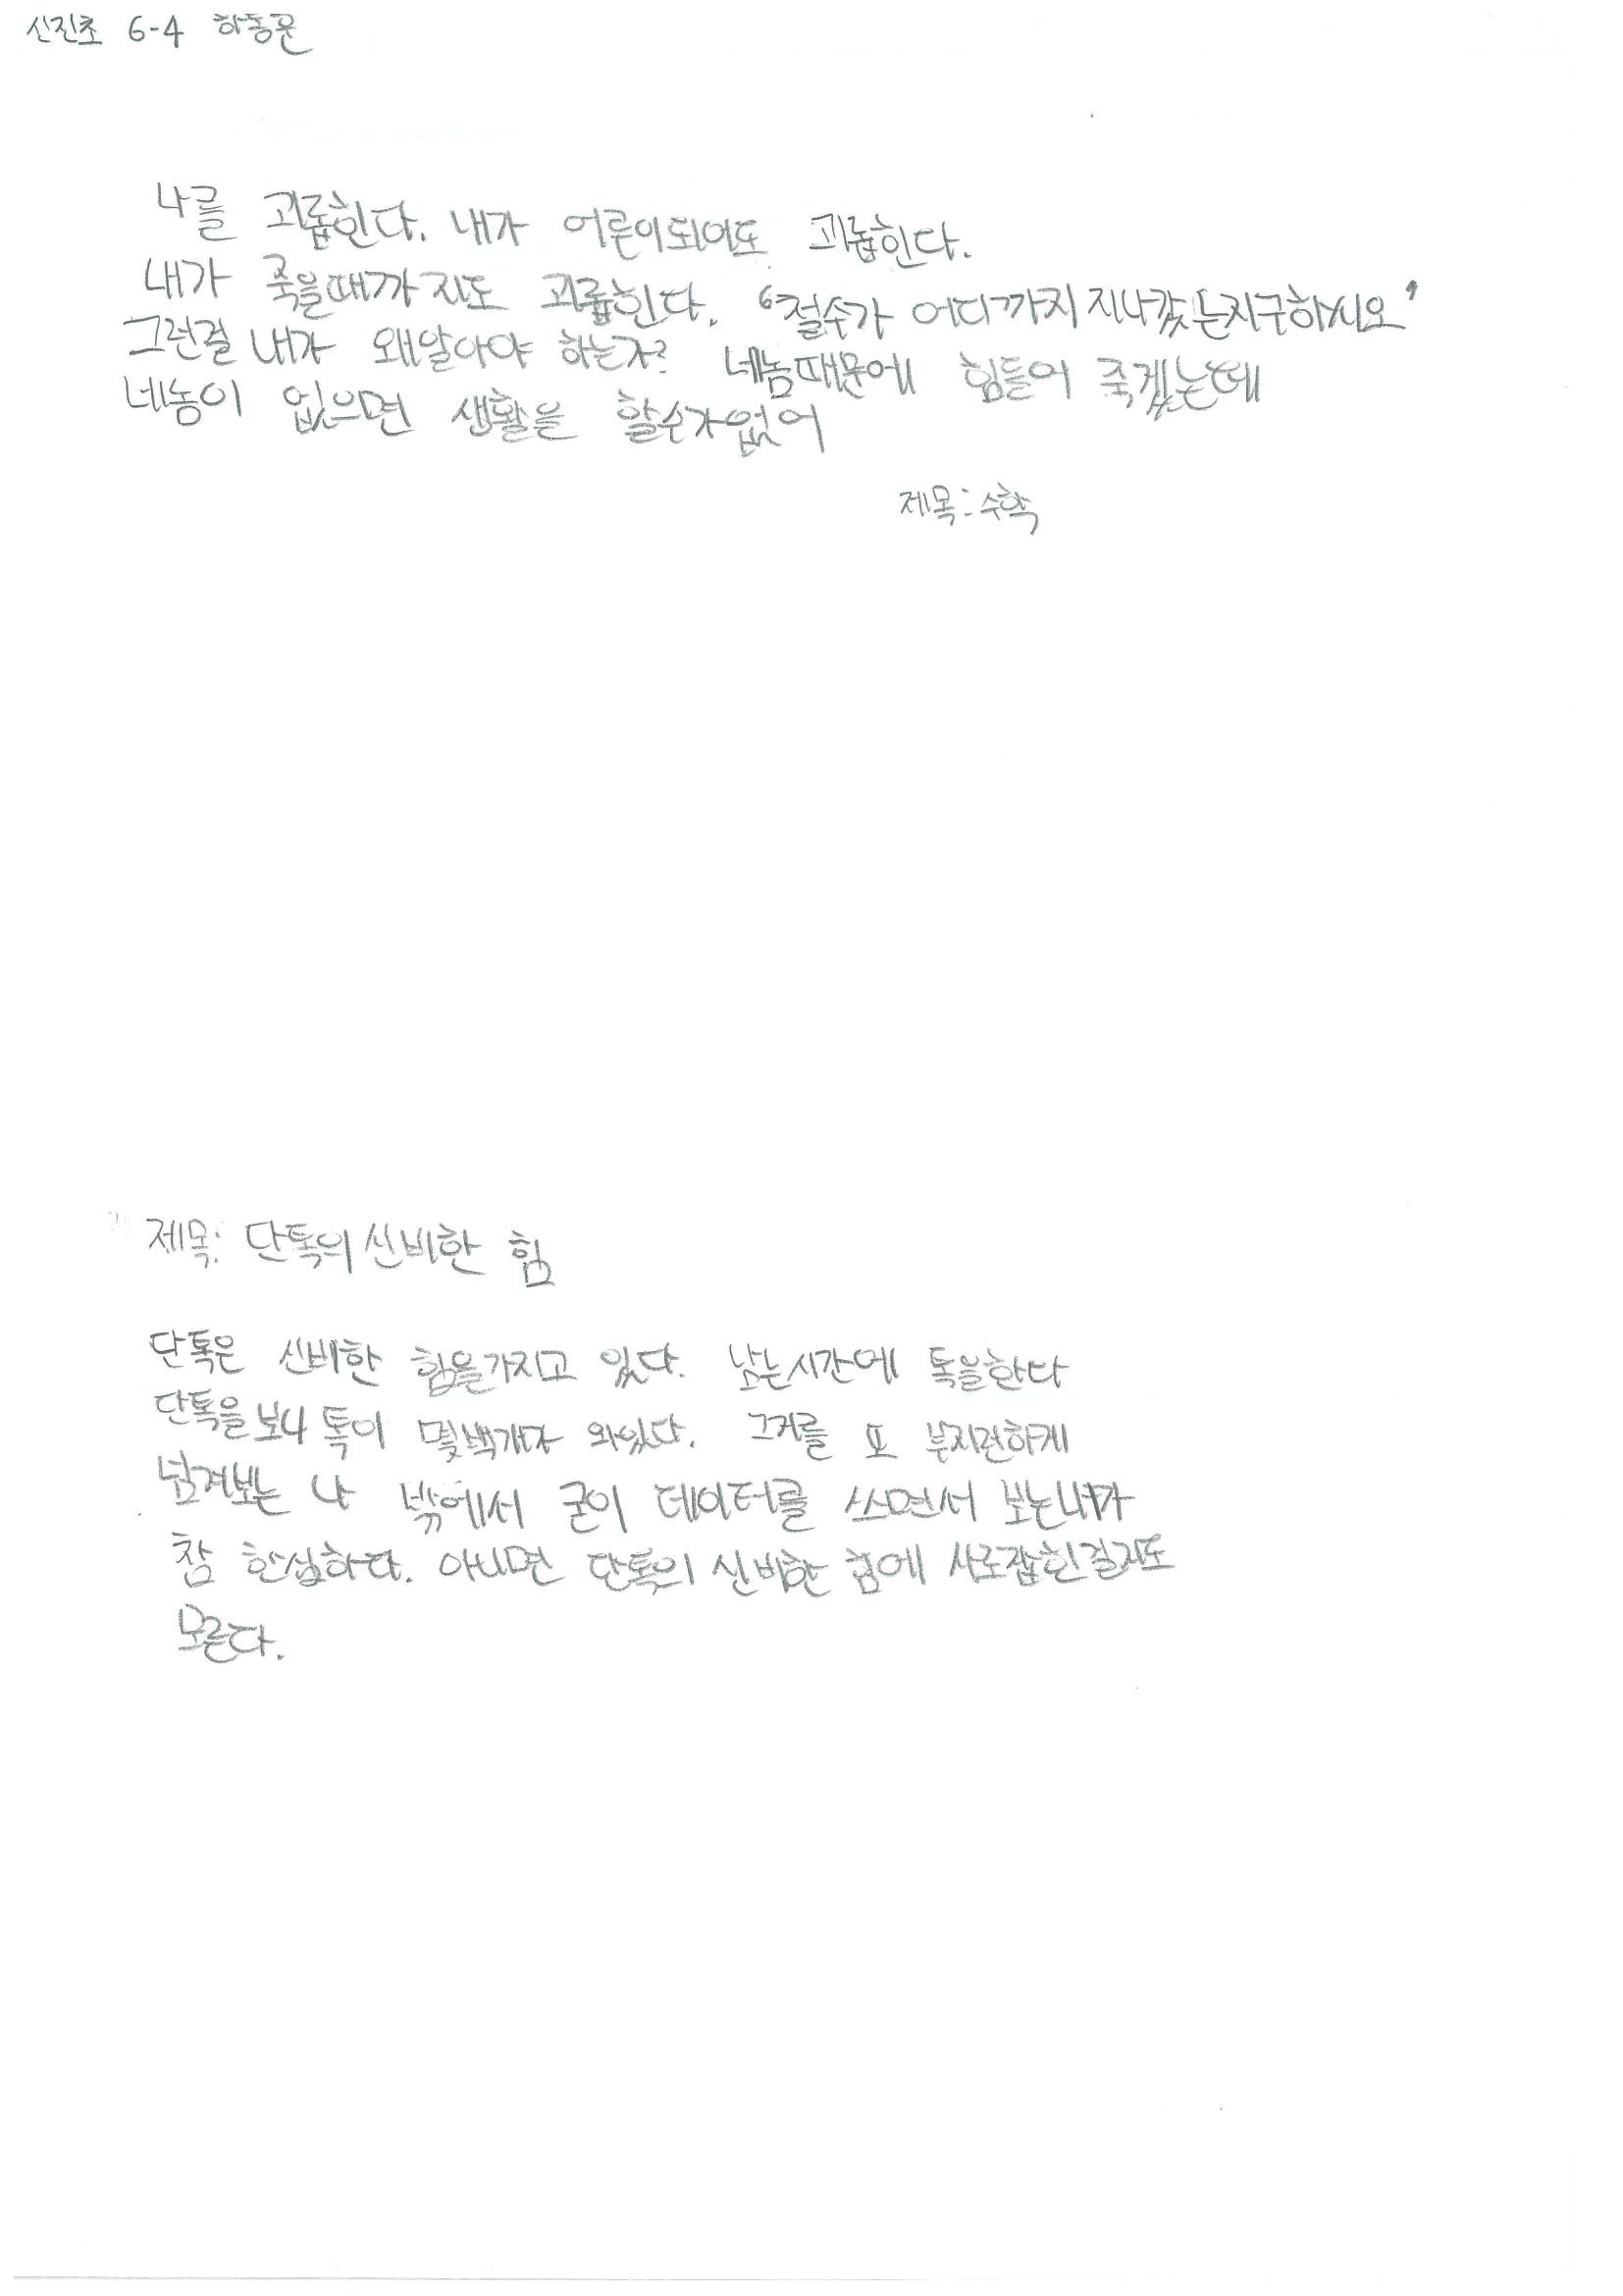 신진초 6-4 하동문
나를 괴롭힌다. 내가 어른이되어도 괴롭힌다.
내가 죽을때까지도 괴롭힌다. "철수가 어디까지 지나갔는지구하시오"
그런걸 내가 왜알아야 하는가? 네놈때문에 힘들어 죽겠는데
네놈이 없으면 생활을 할수가없어
제목: 수학
제목: 단톡의 신비한 힘
단톡은 신비한 힘을가지고 있다. 남는시간에 톡을한다
단톡을보니 톡이 몇백개나 와있다. 그거를 또 부지런하게
넘겨보는 나 밖에서 굳이 데이터를 쓰면서 보는내가
참 한심하다. 아니면 단톡의 신비한 힘에 사로잡힌걸지도
모른다.